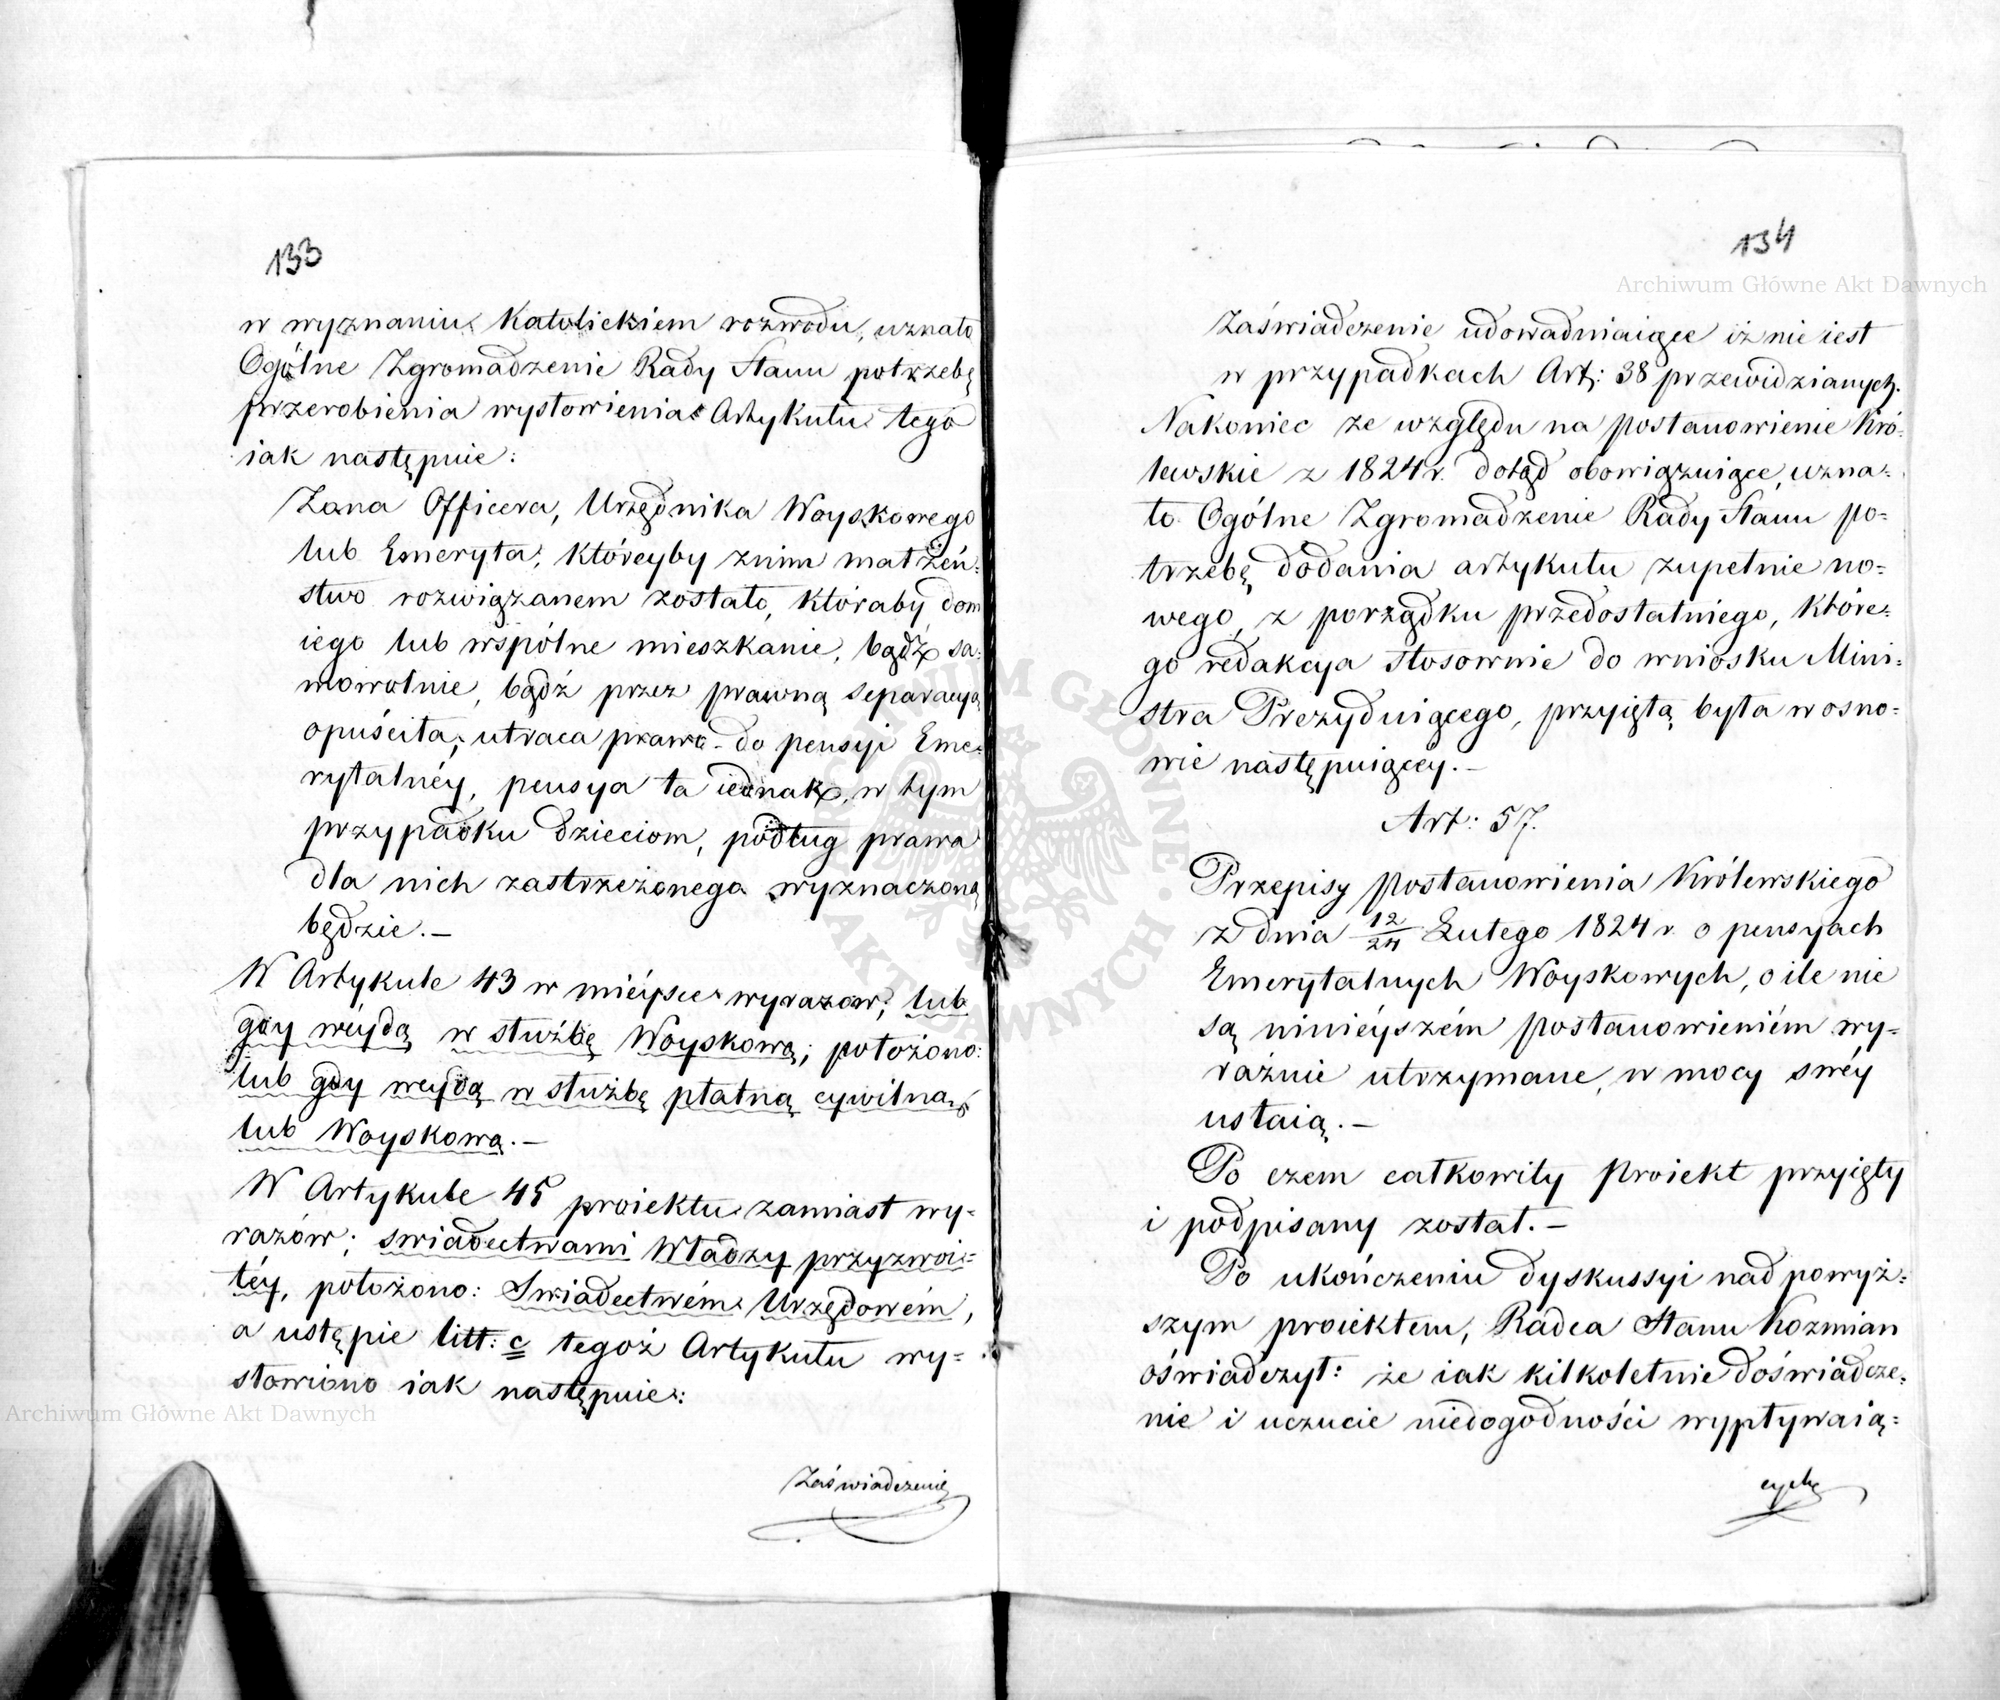 133
w wyznaniu Katolickiem rozwodu, uznało
Ogólne Zgromadzenie Rady Stanu potrzebę
przerobienia wysłowienia Artykułu tego
iak następuie:
Żona Officera, Urzędnika Woyskowego
lub Emeryta, któreyby z nim małżeń:
stwo rozwiązanem zostało, któraby dom
iego lub wspólne mieszkanie, bądź sa:
mowolnie, bądź przez prawną separacyą
opuściła, utraca prawo do pensyi Eme:
rytalnéy, pensya ta iednak, w tym
przypadku dzieciom, podług prawa
dla nich zastrzeżonego wyznaczoną
będzie.—
W Artykule 43 w mieysce wyrazow; lub
gdy weydą w służbę Woyskową; położono:
lub gdy weydą w służbę płatną cywilną
lub Woyskową.—
W Artykule 45 proiektu zamiast wy-
razów; swiadectwami Władzy przyzwoi=
téy, położono: Swiadectwém Urzędowém,
a ustępie litt: c tegoż Artykułu wy=
słowiono iak następuie:
Zaświadczenie
134
Zaświadczenie udowadniaiące iż nie iest
w przypadkach Art: 38 przewidzianych.
Nakoniec ze względu na postanowienie Kró-
lewskie z 1824 r. dotąd obowiązuiące, uzna-
ło Ogólne Zgromadzenie Rady Stanu po=
trzebę dodania artykułu zupełnie no=
wego, z porządku przedostatniego, które-
go redakcya stosownie do wniosku Mini-
stra Prezyduiącego, przyiętą była w osno-
wie następuiącey.—
Art: 57.
Przepisy postanowienia Królewskiego
z dnia 12/24 Lutego 1824 r o pensyach
Emerytalnych Woyskowych, o ile nie
są ninieyszém postanowieniém wy-
raźnie utrzymane, w mocy swéy
ustaią.—
Po czem całkowity proiekt przyięty
i podpisany został.—
Po ukończeniu dyskussyi nad powyż=
szym proiektem, Radca Stanu Kozmian
oświadczył: że iak kilkoletnie doświadcze-
nie i uczucie niedogodności wypływaią=
cych
Archiwum Główne Akt Dawnych
Archiwum Główne Akt Dawnych
ARCHIWUM GŁÓWNE AKT DAWNYCH